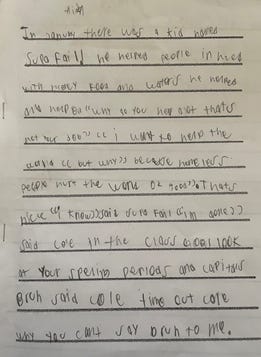 In January there was a kid named
Supa Fail he helped people in need
with money Food and waters he helped
and help "why do you help alot thats
not your Job" " i want to help the
world " but why>> because homeless
people hurt the world Oh good>> thats
nice " i know>> said Supa Fail "im done>>
said cole In the class look
at Your speling periods and capitals
Bruh said cole time out cole
why you cant say bruh to me.